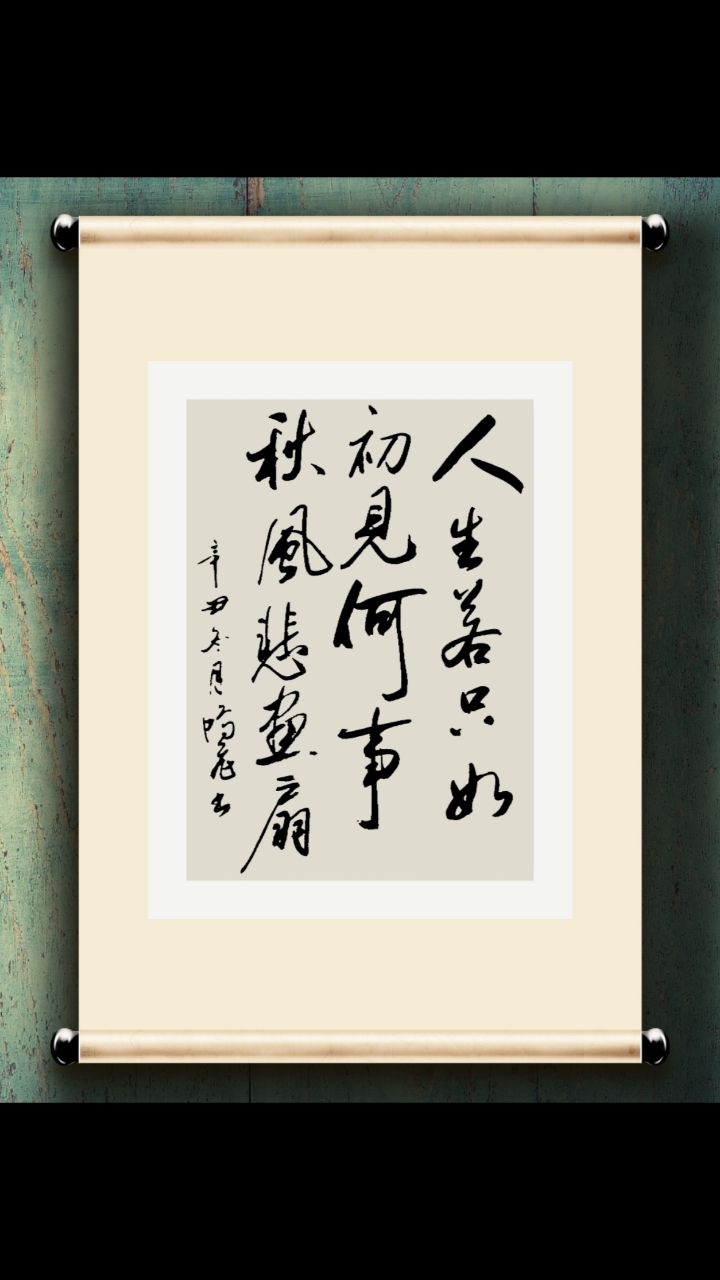 人生若只如
初見何事
秋風悲画扇
辛丑冬月 書